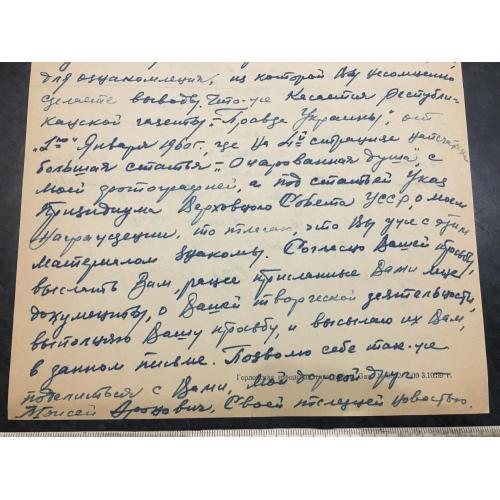 для ознакомления, из которой Вы несомненно
сделаете выводы. Что-же касается Республи-
канской газеты: "Правда Украины", от
"1го" Января 1960г, где на 4й странице напечатана
большая статья "Очарованная душа", с
моей фотографией, а под статьей Указ
Призидиума Верховного Совета УССР, о моем
награждении, то полагаю, что Вы уже с этим
материалом знакомы. Согласно Вашей просьбы,
выслать Вам, ранее присланные Вами мне,
документы, о Вашей творческой деятельности,
выполняю Вашу просьбу, и высылаю их Вам,
в данном письме. Позволю себе так-же
поделиться с Вами, мой дорогой друг
Моисей Аронович, своей последней новостью.